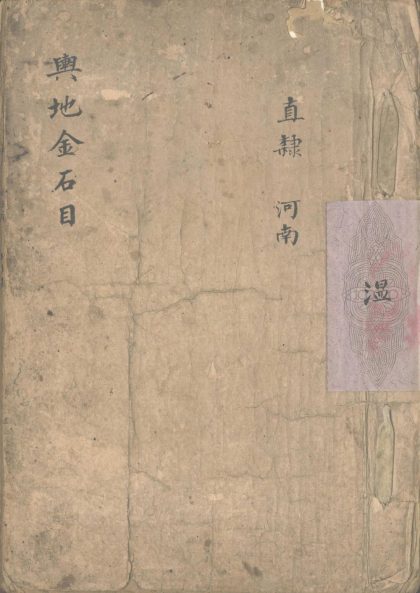 輿地金石目
直隸 河南
湿